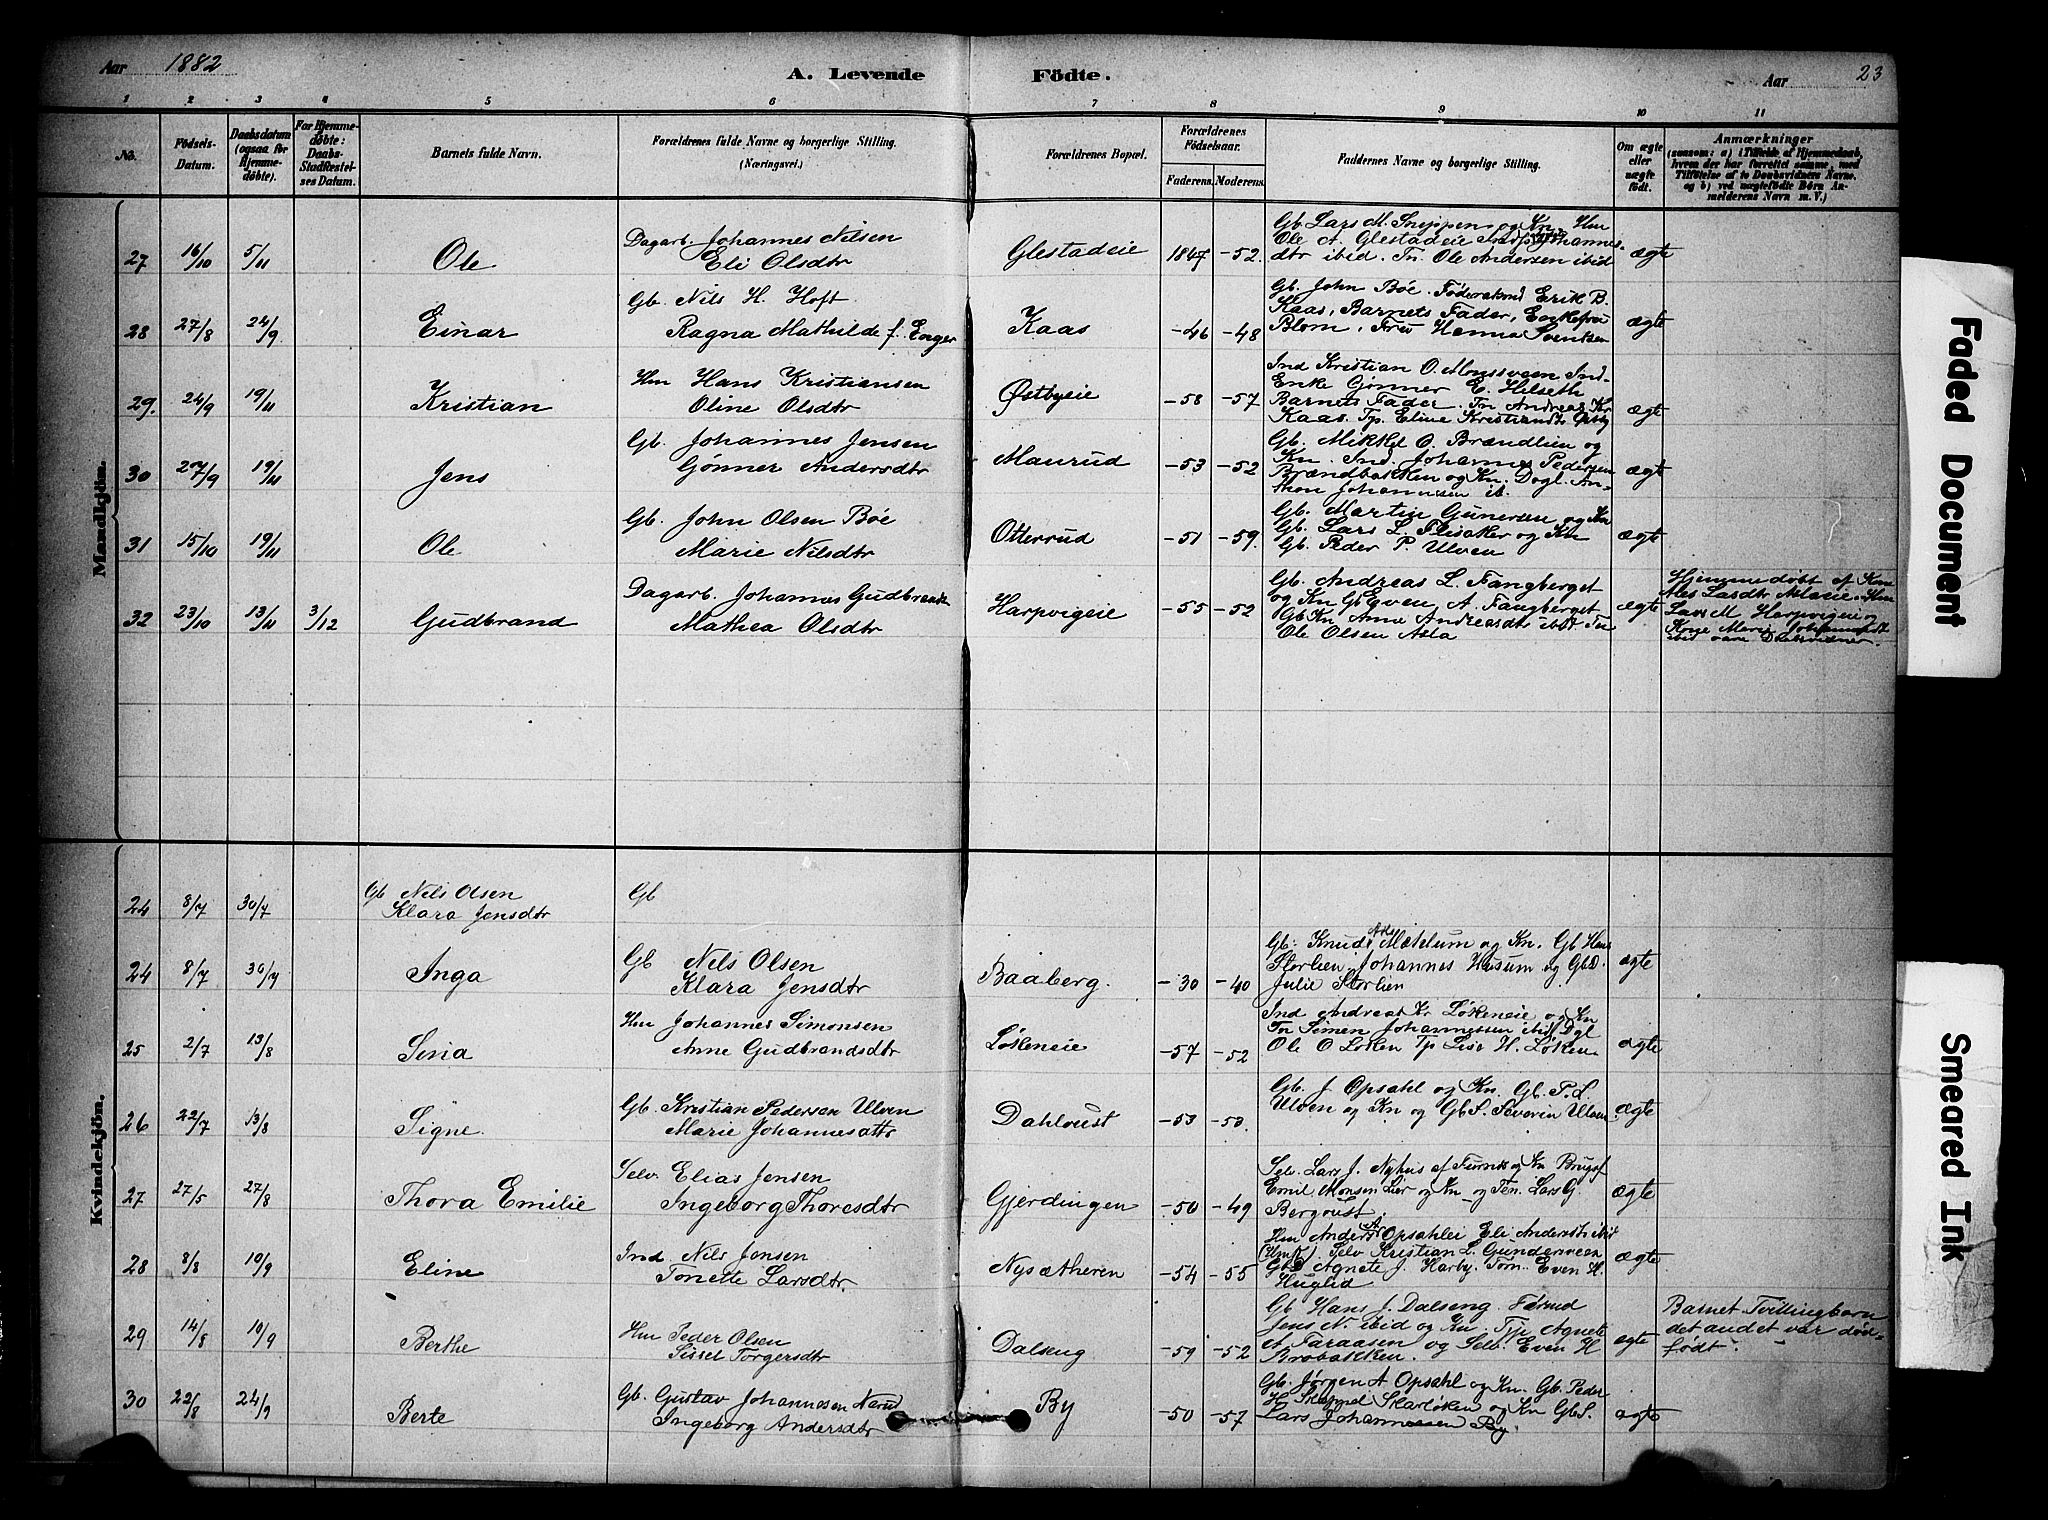 Aar 1882
A. Levende Födte.
Aar 23
1 2 3 4 5 6 7 8 9 10 11
No.
Födsels-Datum.
Daabsdatum (ogsaa for Hjemmedöbte).
For Hjemmedöbte: Daabs-Stadfæstelses Datum.
Barnets fulde Navn.
Forældrenes fulde Navne og borgerlige Stilling. (Næringsvei.)
Forældrenes Bopæl.
Forældrenes Födselsaar.
Faderens. Moderens.
Faddernes Navne og borgerlige Stilling.
Om ægte eller uægte födt.
Anmærkninger
(saasom: a) i Tilfælde af Hjemmedaab, hvem der har forrettet samme, med Tilföielse af to Daabsvidners Navne. og b) ved uægtefödte Börn Anmelderens Navn m. V.)
Mandkjön.
27 16/10 5/11 Ole
Dagarb. Johannes Nilsen
Eli Olsdtr
Glestadeie 1847 -52.
Gb. Lars M. Sneppen og Kn. Hm
Ole A. Glestadeie Johannes-
dtr ibid. Tn. Ole Andersen ibid
ægte
28 27/8 24/9 Einar
Gb. Nils H. Hoft
Ragna Mathilde f. Enger
Kaas -46 -48
Gb. John Bøe. Føderaadsmd Erik B.
Kaas, Barnets Fader, Enkefru
Blom, Fru Hanna Svendsen
ægte
29. 24/9 19/11 Kristian
Hm Hans Kristiansen
Oline Olsdtr
Østbyeie -58 -57
Ind Kristian O. Monsveen Ind-
Enke Gønner E. Helseth
Barnets Fader. Tn Andreas Kr
Kaas. Tp. Eline Kristiansdtr
ægte
30 27/9 19/11 Jens
Gb. Johannes Jensen
Gønner Andersdtr
Maurud -53 -52
Gb. Mikkel O. Brændlien og
Kn. Ind. Johannes Pedersen
Brændbakken og Kn. Dagl. An-
thon Johannesen ib.
ægte
31 15/10 19/11 Ole
Gb. John Olsen Bøe
Marie Nilsdtr
Otterrud -51 -59.
Gb. Martin Gunersen og Kn
Gb. Lars L. Flisaker og Kn
Gb. Peder P. Ulven
ægte
32 23/10 13/11 3/12 Gudbrand
Dagarb. Johannes Gudbrandsen
Mathea Olsdtr
Harpvigeie -55 -52
Gb. Andreas L. Fangberget
og Kn Gb Even A. Fangberget
Gb Kn Anne Andreasdtr ibid Tn
Ole Olsen Asta
ægte
Hjemmedøbt af Kone
Larsdtr
Lars M. Harpvigeie og
Kone Marie
ibid vare Daabsvidner.
Kvindekjön.
24 8/7 30/7
Gb Nils Olsen
Klara Jensdtr
Gb
24 8/7 30/7 Inga
Gb Nils Olsen
Klara Jensdtr
Baaberg. -30 -40
Gb. Knud Mæhlum og Kn. Gb Hans
Storlien, Johannes Husum og GbD.
Julie Storlien
ægte
25 2/7 13/8 Sina
Hm Johannes Simonsen
Anne Gudbrandsdtr
Løkeneie -57 -52
Ind Andreas Kr Løkeneie og Kn
Tn Simen Johannessen ibid Dgl
Ole O Løken Tp Lise H. Løken
ægte
26 22/7 13/8 Signe.
Gb. Kristian Pedersen Ulven
Marie Johannesdtr
Dahloust -53 -50.
Gb. J Opsahl og Kn. Gb. P. L.
Ulven og Kn og Gb S. Severin Ulven.
ægte
27 27/5 27/8 Thora Emilie
Selv. Elias Jensen
Ingeborg Thoresdtr
Gjerdingen -50 -49
Selv. Lars J. Nyhus af Furnes og Kn Brugsf
Emil Monsen Lier og Kn og Ten. Lars G.
Bergoust.
ægte
28 8/8 10/9 Eline
Ind Nils Jensen
Tonette Larsdtr
Nysætheren -54 -55
Hm Anders A Opsahlei Eli Andersdtr ibid
Selv Kristian L. Gunderveen
GbD Agnete J Harby. Tom. Even H.
Huglid
ægte
29 14/8 10/9 Berthe
Hm Peder Olsen
Sissel Torgersdtr
Dalseng -59 -52
Gb Hans J. Dalseng
Jens N ibid og Kn. Tje Agnete
A Faraasen og Selv. Even H
Brobakken.
ægte
Barnet Tvillingbarn
det andet var død-
født.
30 22/8 24/9 Berte
Gb. Gustav Johannesen Narud
Ingeborg Andersdtr
By -50 -57
Gb. Jørgen A Opsahl og Kn. Gb. Peder
H Skarløken og Kn Gb S.
Lars Johannessen By.
ægte
Faded Document
Smeared Ink